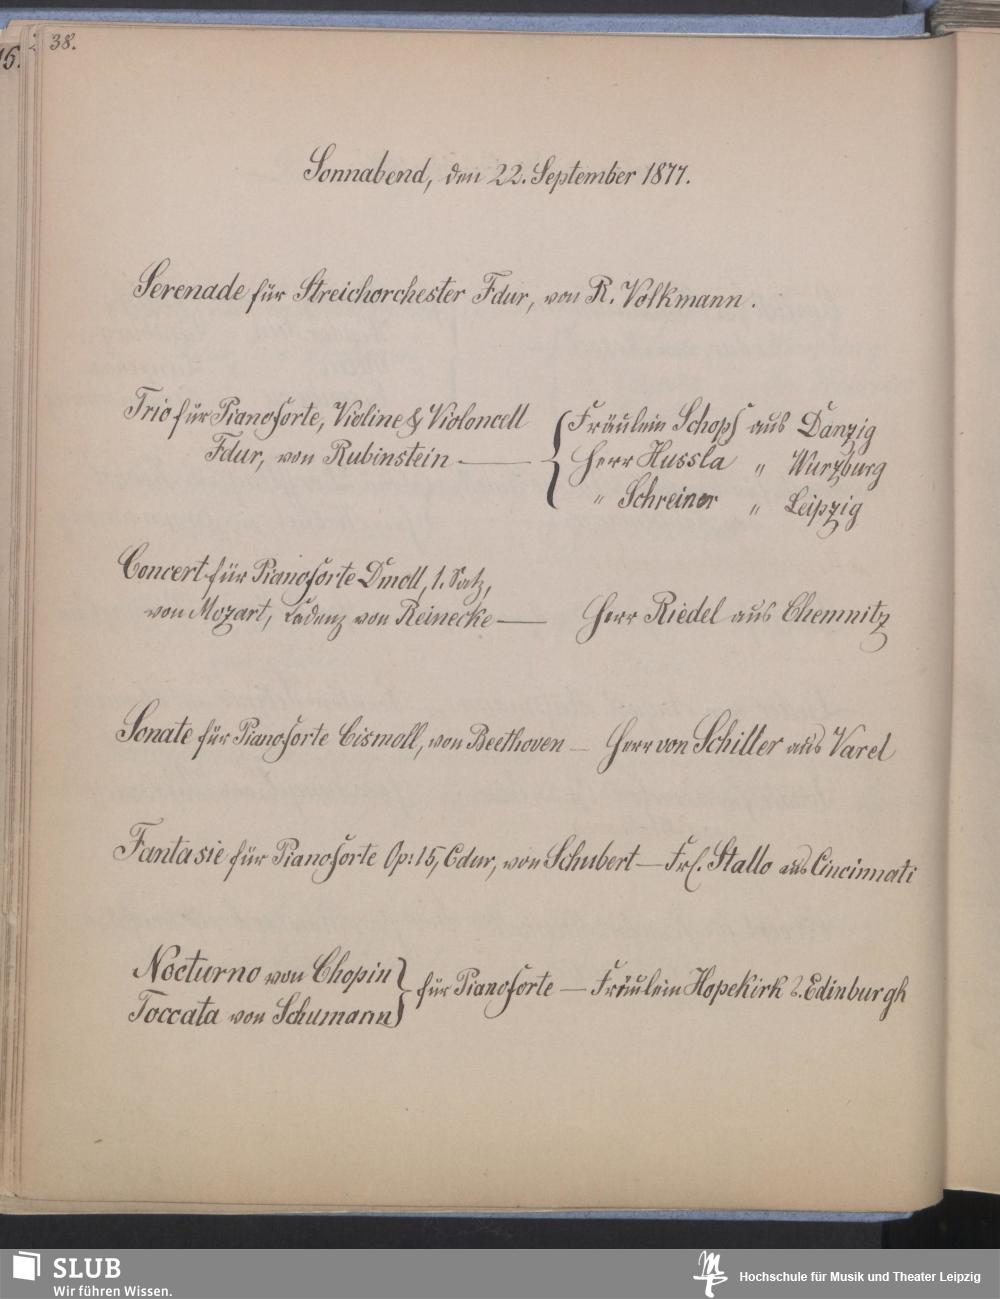 38.
Sonnabend, den 22. September 1877.
Serenade für Streichorchester Fdur, von R. Volkmann.
Trio für Pianoforte, Violine & Violoncell
Fdur, von Rubinstein —
Fräulein Schopf aus Danzig
Herr Hussla " Würzburg
" Schreiner " Leipzig
Concert für Pianoforte Dmoll, 1. Satz,
von Mozart, Cadenz von Reinecke — Herr Riedel aus Chemnitz
Sonate für Pianoforte Cismoll, von Beethoven — Herr von Schiller aus Varel
Fantasie für Pianoforte Op: 15, Cdur, von Schubert — Frl. Stallo aus Cincinnati
Nocturno von Chopin
Toccata von Schumann
für Pianoforte — Fräulein Hopekirk a. Edinburgh
SLUB
Wir führen Wissen.
Hochschule für Musik und Theater Leipzig